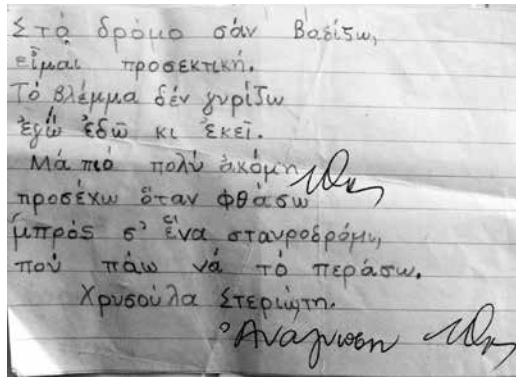 Στὸ δρόμο σάν βαδίζω,
εἶμαι προσεκτική.
Τό βλέμμα δέν γυρίζω
ἐγώ ἐδῶ κι ἐκεῖ.
Μά πιό πολύ ἀκόμη
προσέχω ὅταν φθάσω
μπρός σ' ἕνα σταυροδρόμι,
πού πάω νά τό περάσω.
Χρυσούλα Στεριώτη.
Ἀνάγνωση